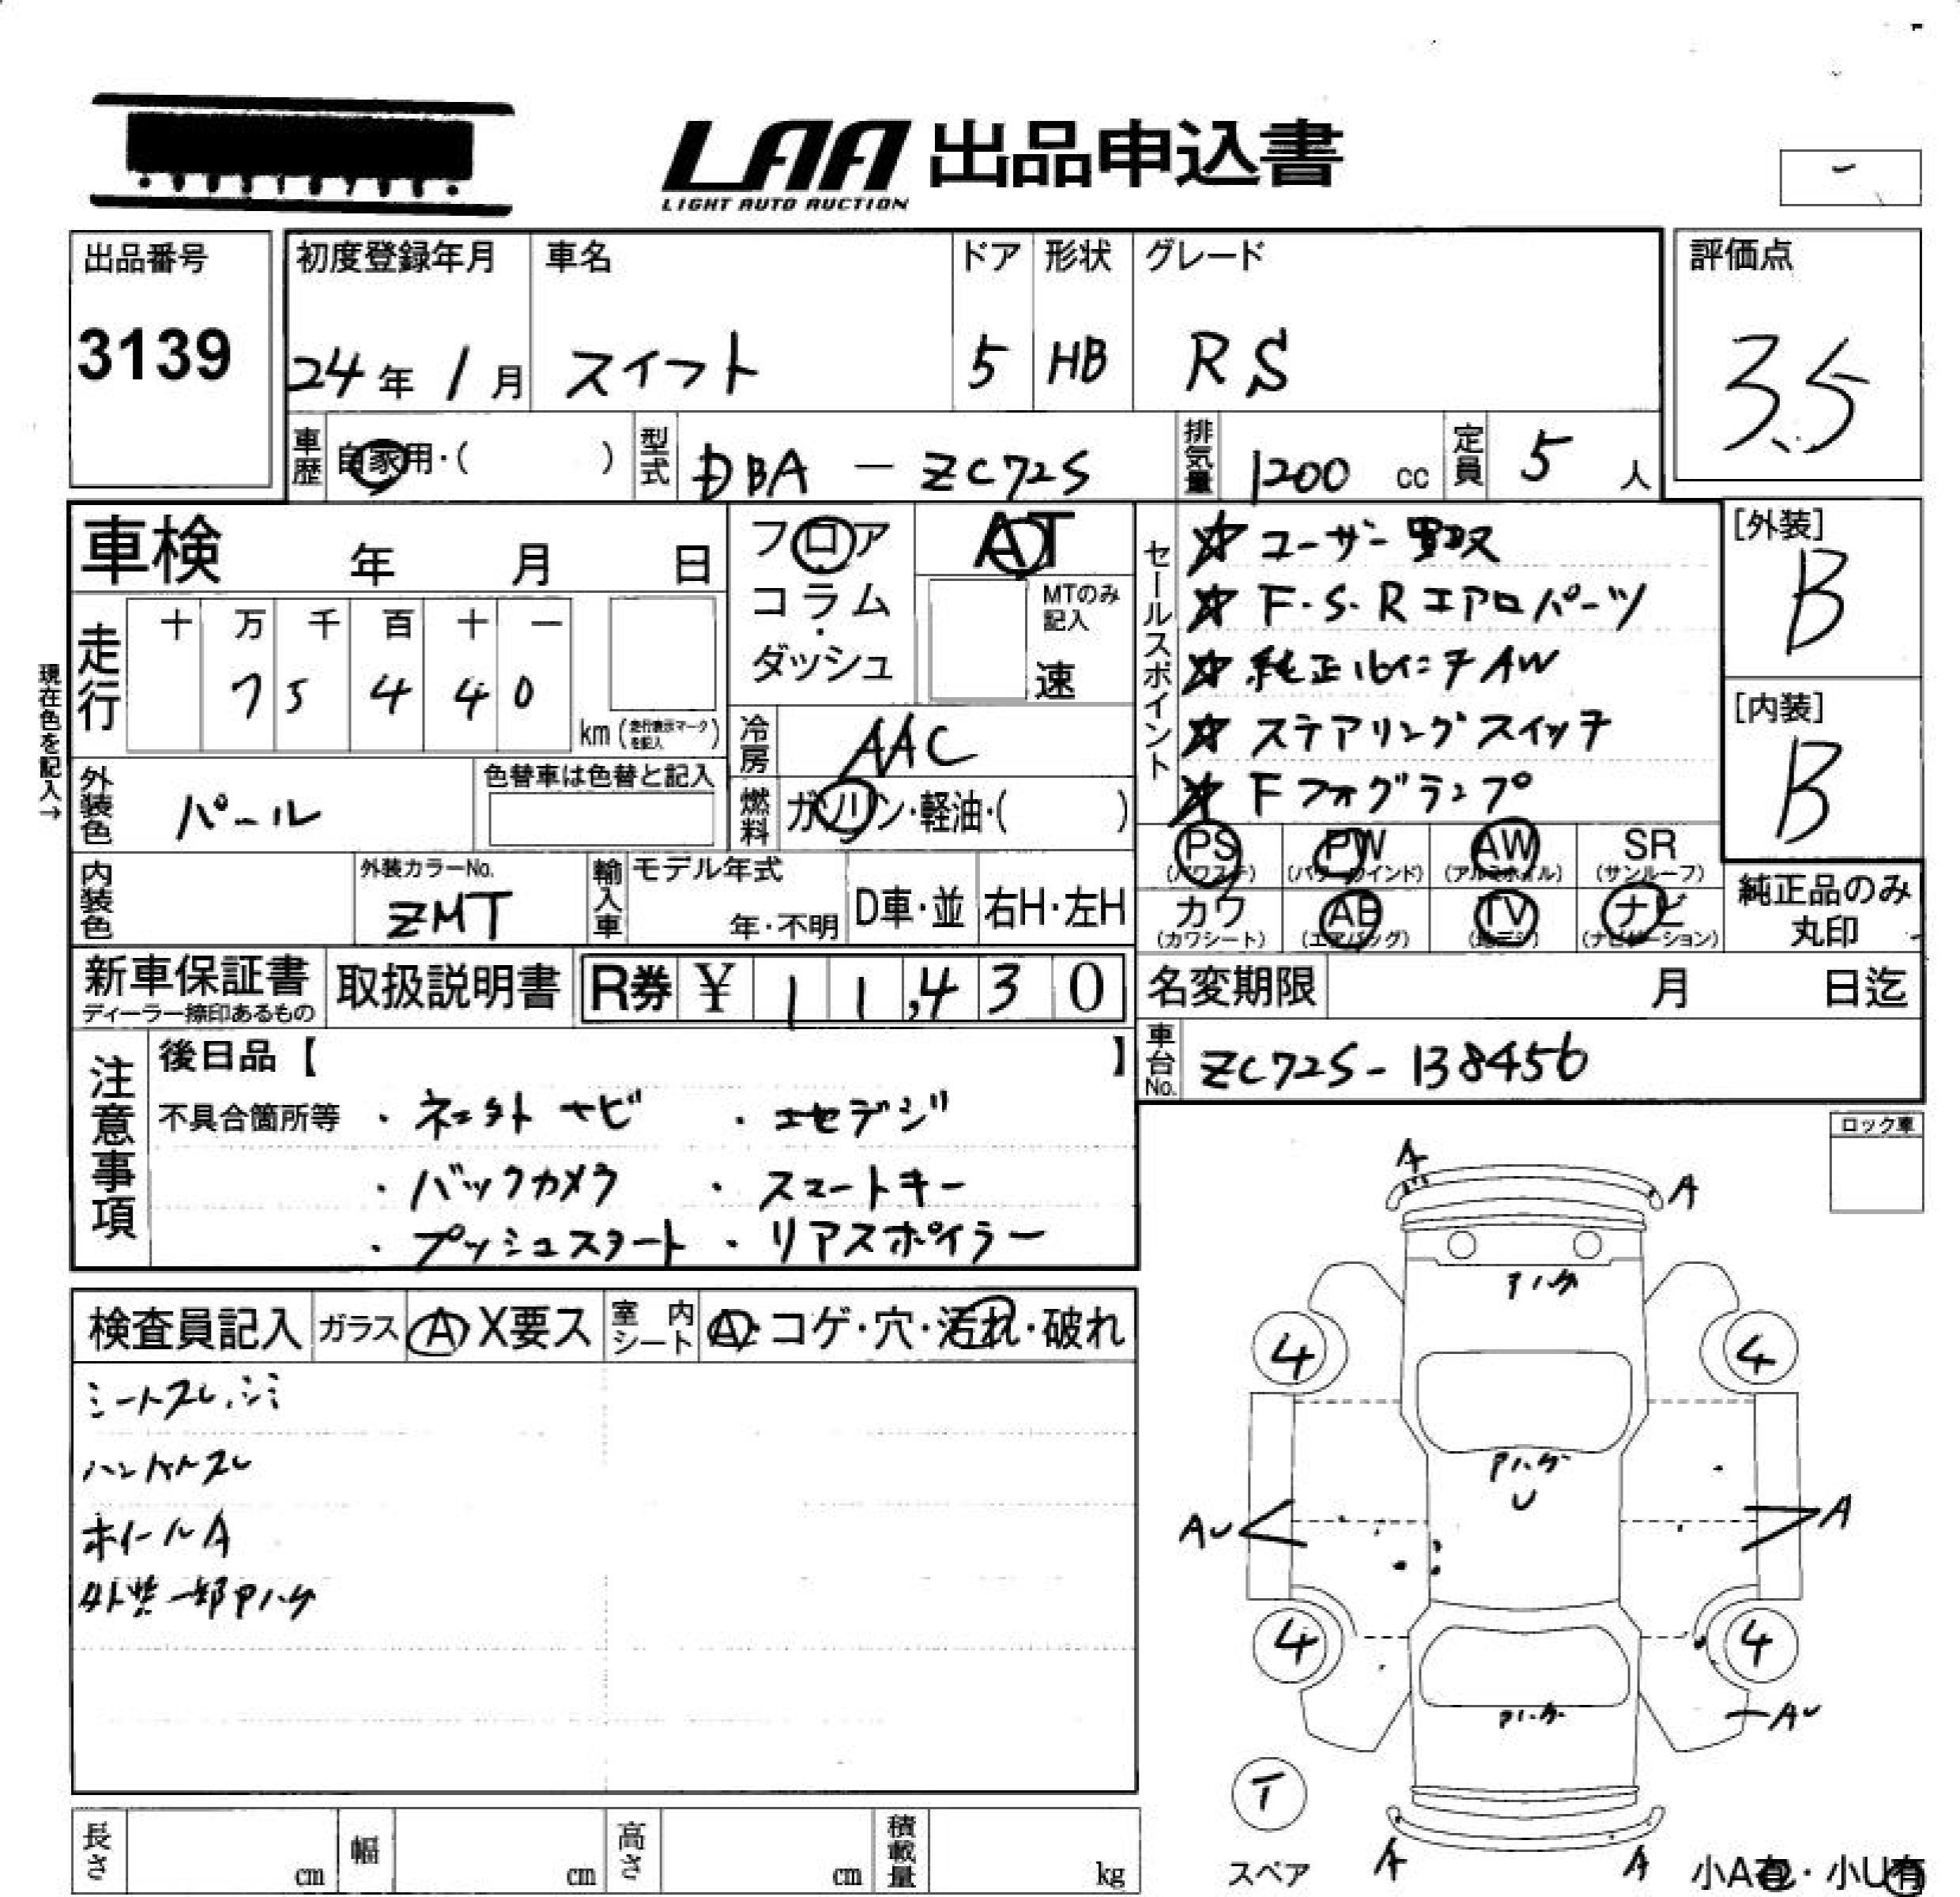 LAA 出品申込書
LIGHT AUTO AUCTION
出品番号
3139
初度登録年月
24年 1月
車名
スイフト
ドア
5
形状
HB
グレード
RS
評価点
3.5
車歴
自家用・( )
型式
DBA - ZC72S
排気量
1200 cc
定員
5 人
車検 年 月 日
フロア
コラム・ダッシュ
AT
MTのみ記入
速
セールスポイント
☆ ユーザー買取
☆ F・S・Rエアロパーツ
☆ 純正16インチAW
☆ ステアリングスイッチ
☆ Fフォグランプ
[外装]
B
[内装]
B
走行
十 万 千 百 十 一
7 5 4 4 0
km (走行表示マークを記入)
現在色を記入→
冷房
AAC
外装色
パール
色替車は色替と記入
燃料
ガソリン・軽油・( )
PS (パワステ)
PW (パワーウインド)
AW (アルミホイル)
SR (サンルーフ)
カワ (カワシート)
AB (エアバッグ)
TV (地デジ)
ナビ (ナビゲーション)
純正品のみ丸印
内装色
外装カラーNo.
ZMT
輸入車
モデル年式
年・不明
D車・並
右H・左H
新車保証書
ディーラー捺印あるもの
取扱説明書
R券 ¥ 11,430
名変期限 月 日迄
車台No.
ZC72S-138456
注意事項
後日品【 】
不具合箇所等
・ネコタト ナビ ・エセデジ
・バックカメラ ・スマートキー
・プッシュスタート ・リアスポイラー
ロック車
検査員記入
ガラス
A X要ス
室内シート
A コゲ・穴・汚れ・破れ
シートスレ.シミ
ハンドルスレ
ホイールA
外装一部Pハゲ
A
A
Pハゲ
4
4
Pハゲ
U
AU
A
4
4
Pハゲ
AU
T
スペア
A
A
小A有・小U有
長さ cm
幅 cm
高さ cm
積載量 kg